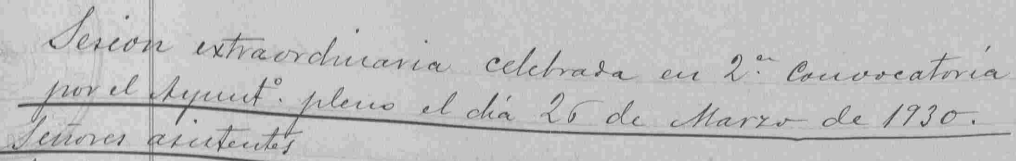 Sesion extraordinaria celebrada en 2ª. Convocatoria
por el Ayuntº. pleno el dia 26 de Marzo de 1930.
Señores asistentes